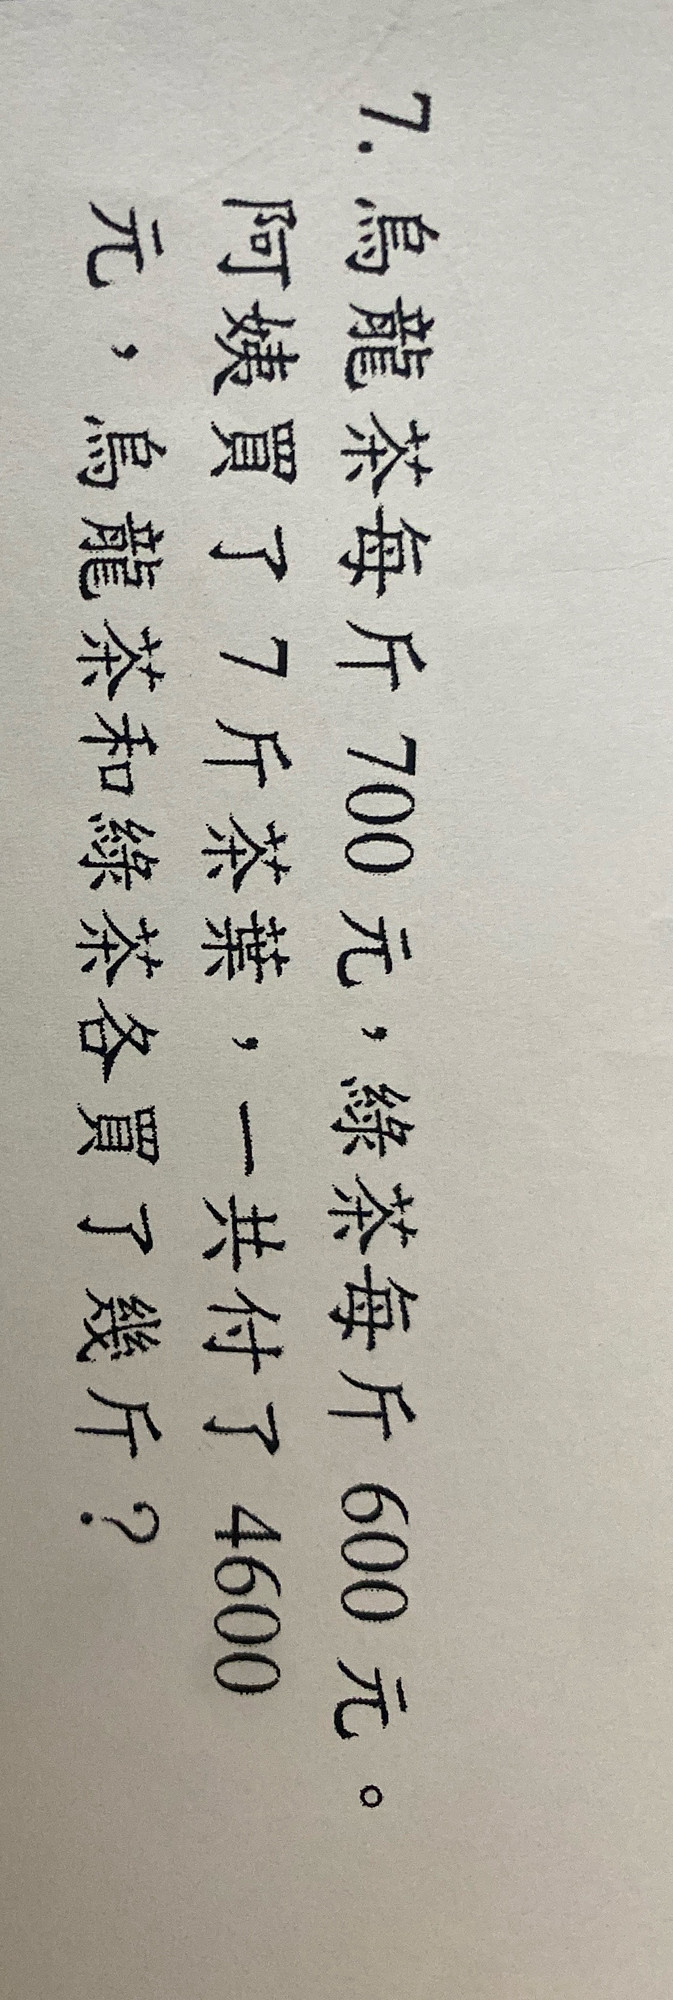 7. 烏龍茶每斤 700 元，綠茶每斤 600 元。
阿姨買了 7 斤茶葉，一共付了 4600
元，烏龍茶和綠茶各買了幾斤？